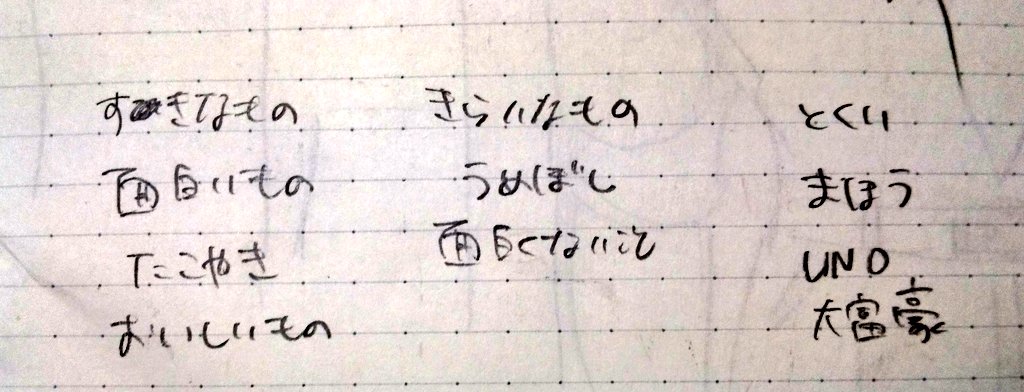 すきなもの
面白いもの
たこやき
おいしいもの
きらいなもの
うめぼし
面白くないこと
とくい
まほう
UNO
大富豪